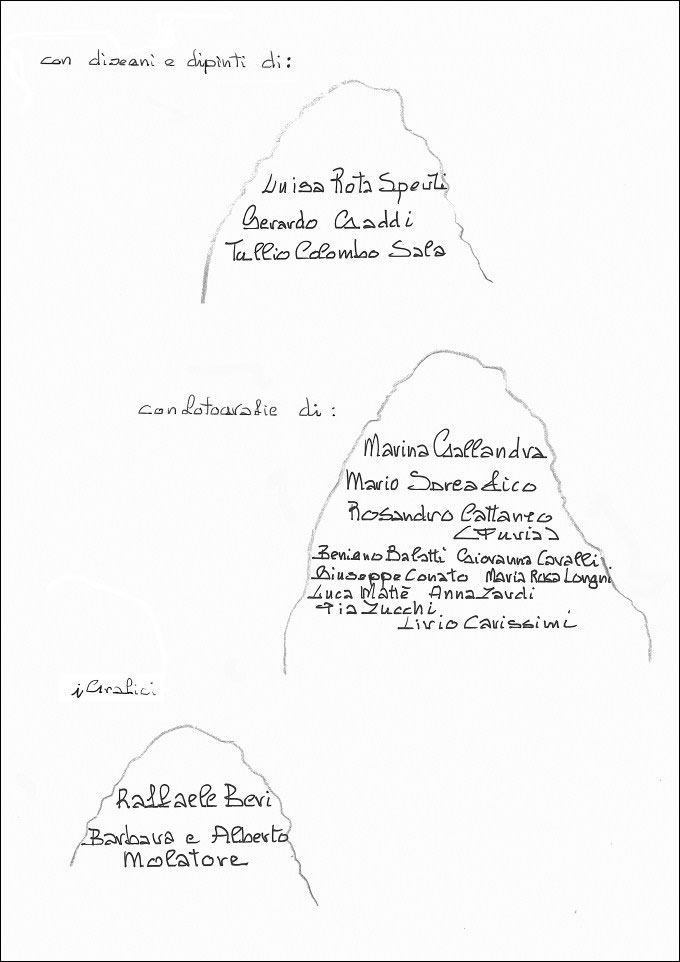 con disegni e dipinti di:
Luisa Rota Sperti
Gerardo Gaddi
Tullio Colombo Sala
con fotografie di:
Marina Gallandra
Mario
Rosandro Cattaneo
(Furia)
Benigno Balatti Giovanna Cavalli
Giuseppe Conato Maria Rosa Longhi
Luca Matiè Anna Zardi
Pia Zucchi
Livio Carissimi
i Grafici
Raffaele Bevi
Barbara e Alberto
Molatore